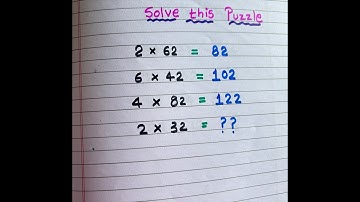 Solve this Puzzle
2 × 62 = 82
6 × 42 = 102
4 × 82 = 122
2 × 32 = ??